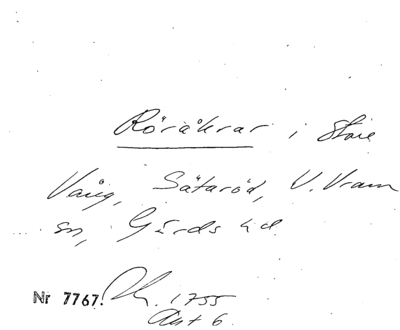 Röråkrar i Store
Vång, Sätaröd, V. Vram
sn, Gärds hd.
Nr 7767. 1755
Akt 6.